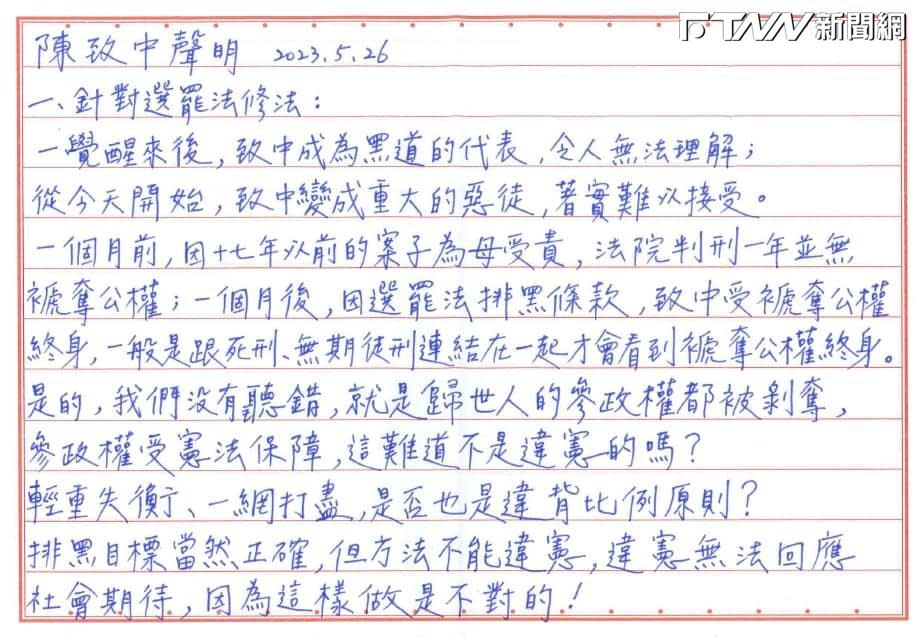 FTNN新聞網
陳致中聲明 2023.5.26
一、針對選罷法修法：
一覺醒來後，致中成為黑道的代表，令人無法理解；
從今天開始，致中變成重大的惡徒，著實難以接受。
一個月前，因十七年以前的案子為母受責，法院判刑一年並無
褫奪公權；一個月後，因選罷法排黑條款，致中受褫奪公權
終身，一般是跟死刑、無期徒刑連結在一起才會看到褫奪公權終身。
是的，我們没有聽錯，就是歸世人的參政權都被剝奪，
參政權受憲法保障，這難道不是違憲的嗎？
輕重失衡、一網打盡，是否也是違背比例原則？
排黑目標當然正確，但方法不能違憲，違憲無法回應
社會期待，因為這樣做是不對的！